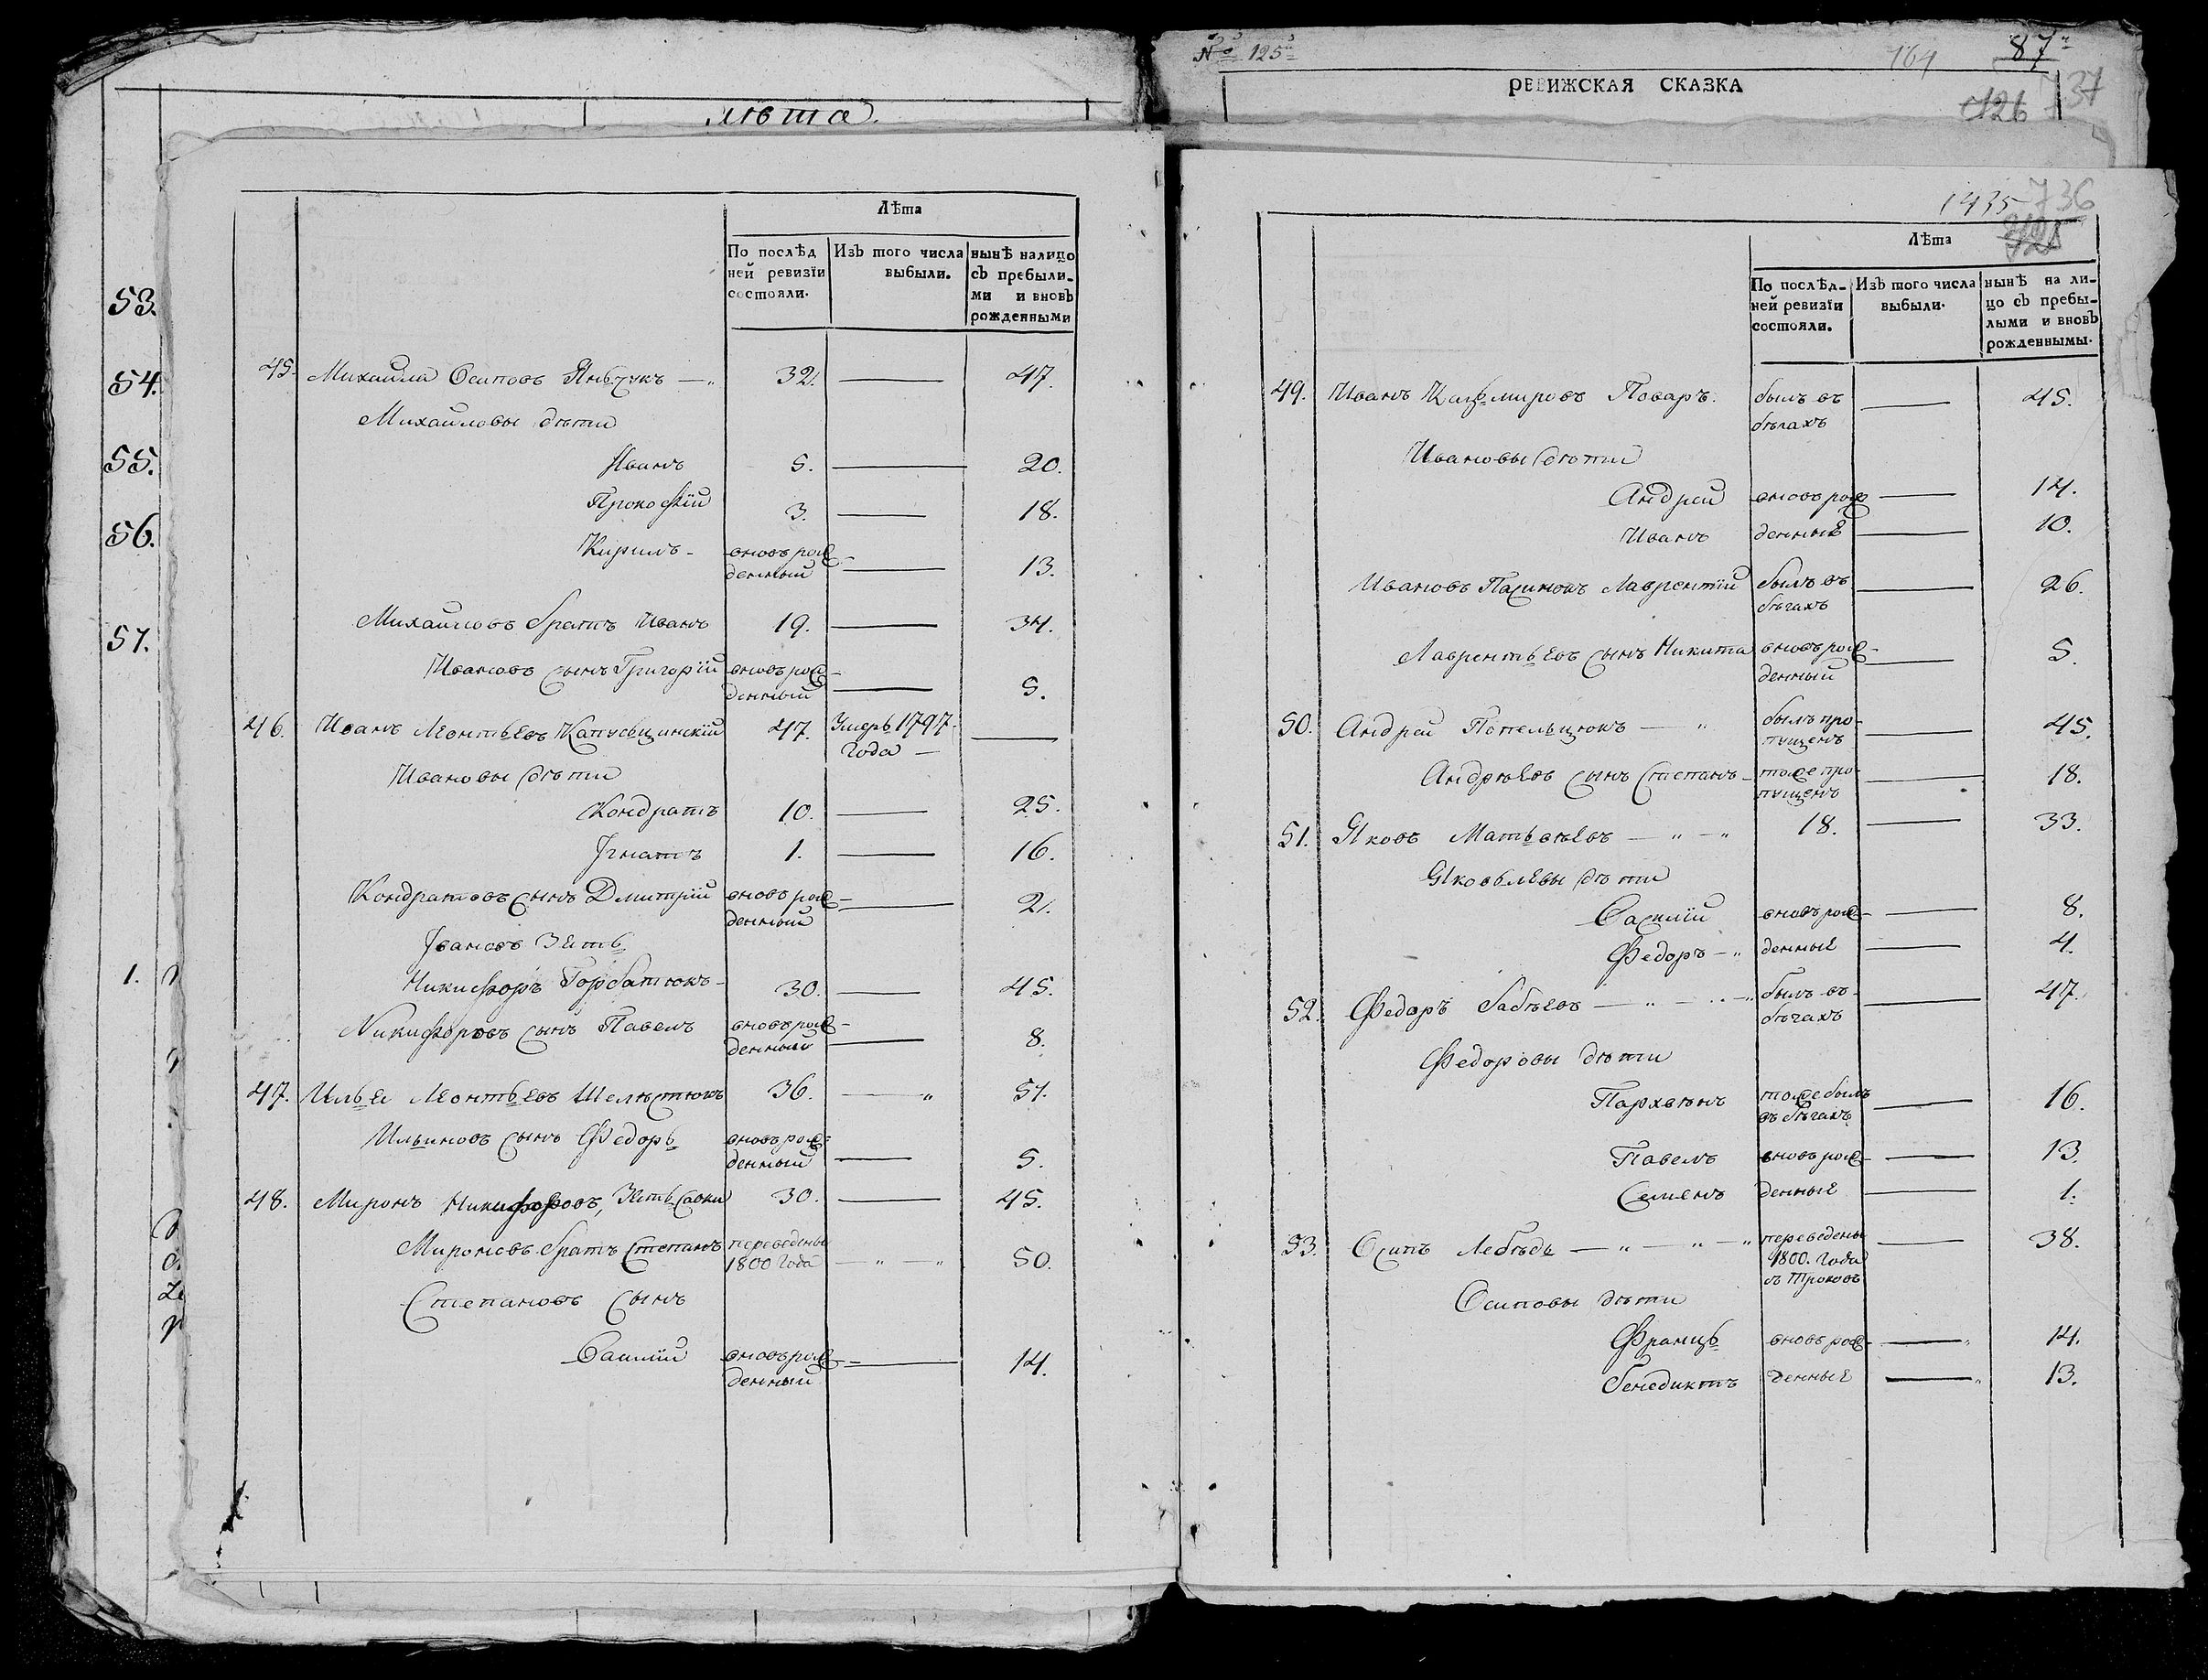 лѣта.
53.
54.
55.
56.
57.
1.
Лѣта
По послѣд ней ревизїи состояли.
Изъ того числа выбыли.
нынѣ налицо съ пребылими и вновь рожденными
45. Михайла Осиповъ Янчукъ — 32. — 47.
Михайловы дѣти
Иванъ 5. — 20.
Прокофїй 3. — 18.
Кирилъ - вновь рож-
денный — 13.
Михайловъ братъ Иванъ 19. — 34.
Ивановъ сынъ Григорїй вновь рож-
денный — 5.
46. Иванъ Леонтьевъ Капусьцинскїй 47. Умеръ 1797- —
года —
Ивановы дѣти
Кондратъ 10. — 25.
Iгнатъ 1. — 16.
Кондратовъ сынъ Дмитрїй вновь рож-
денный — 2.
Iвановъ Зять
Никифоръ Горбатюкъ - 30. — 45.
Никифоровъ сынъ Павелъ вновь рож-
денный — 8.
47. Илья Леонтьевъ Шелѣстюкъ 36. — „ 51.
Ильиновъ сынъ Федоръ вновь рож-
денный — 5.
48. Миронъ Никифоровъ, Зять Савки 30. — 45.
Мироновъ братъ Степанъ переведены
1800 года — „ — „ 50.
Степановъ сынъ
Василїй вновь рож-
денный — 14.
№ 125й
164
87й
РЕВИЖСКАЯ СКАЗКА
737
126
1435
736
Лѣта
По послѣд-
ней ревизїи
состояли.
Изъ того числа
выбыли.
нынѣ на ли-
цо съ пребы-
лыми и вновь
рожденнымы.
49. Иванъ Казьмировъ Поваръ. былъ въ
бѣгахъ — 45.
Ивановы дѣти
Андрей вновь рож — 14.
Иванъ денные — 10.
Ивановъ Пасинокъ Лаврентїй былъ въ
бѣгахъ — 26.
Лаврентьевъ сынъ Никита вновь рож-
денный — 5.
50. Андрей Попельцюкъ — „ былъ про-
пущенъ — 45.
Андрѣевъ сынъ Степанъ - тоже про-
пущенъ — 18.
51. Яковъ Матьвѣевъ — „ — „ 18. — 33.
Яковьлевы дѣти
Василїй вновь рож- — 8.
Федоръ — „ денные — 4.
52. Федоръ Бабѣевъ — „ — „ — „ былъ въ
бѣгахъ — 47.
Федоровы дѣти
Пархвѣнъ тоже былъ
въ бѣгахъ — 16.
Павелъ вновь рож- — 13.
Семенъ денные — 1.
53. Осипъ Лебѣдь — „ — „ — „ переведены
1800. года — 38.
Осиповы дѣти
Францъ вновь рож- — „ 14.
Бенедиктъ денные — „ 13.